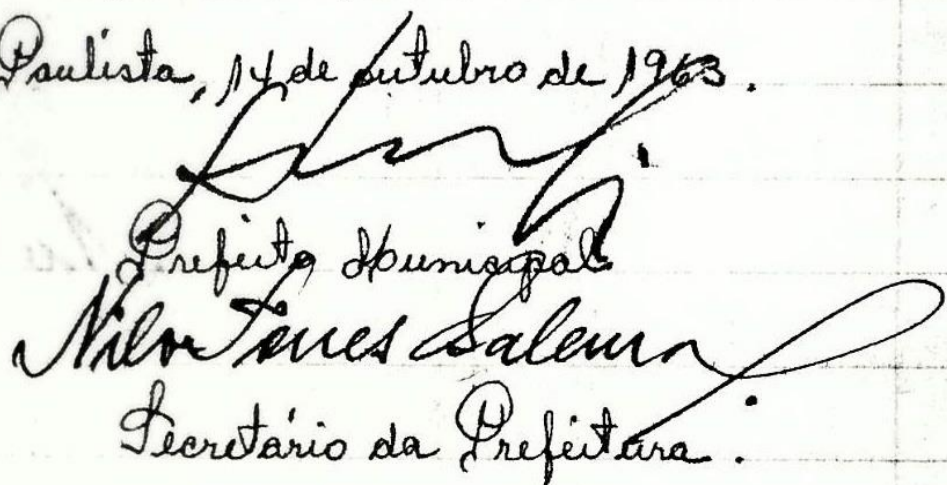 Paulista, 14 de outubro de 1963.
Prefeito Municipal
Nilo Torres Salema
Secretário da Prefeitura.